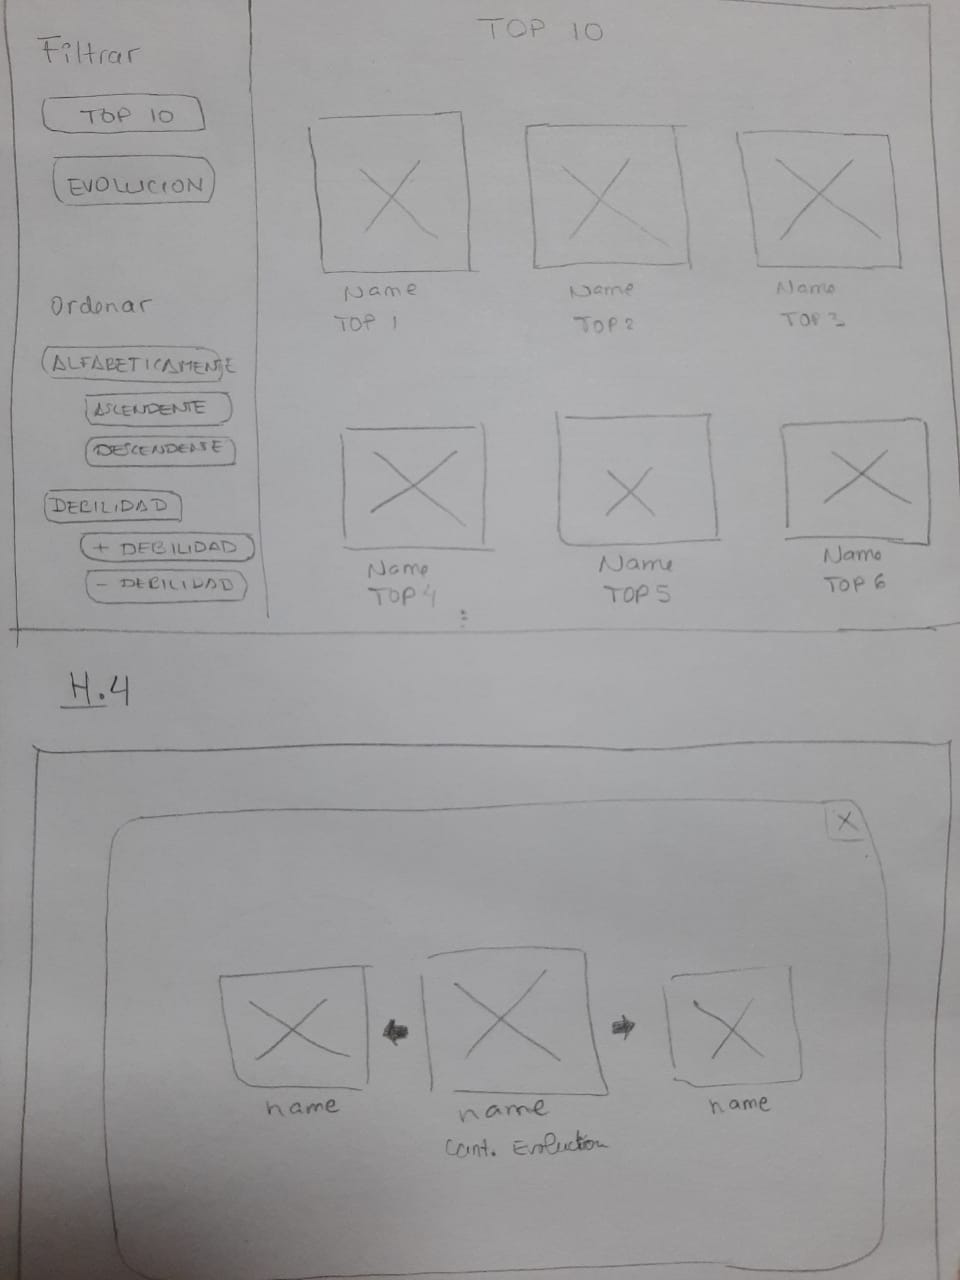 Filtrar
TOP 10
EVOLUCION
Ordenar
ALFABETICAMENTE
ASCENDENTE
DESCENDENTE
DEBILIDAD
+ DEBILIDAD
- DEBILIDAD
TOP 10
Name
TOP 1
Name
TOP 2
Name
TOP 3
Name
TOP 4
Name
TOP 5
Name
TOP 6
H.4
X
name
name
Cant. Evolution
name